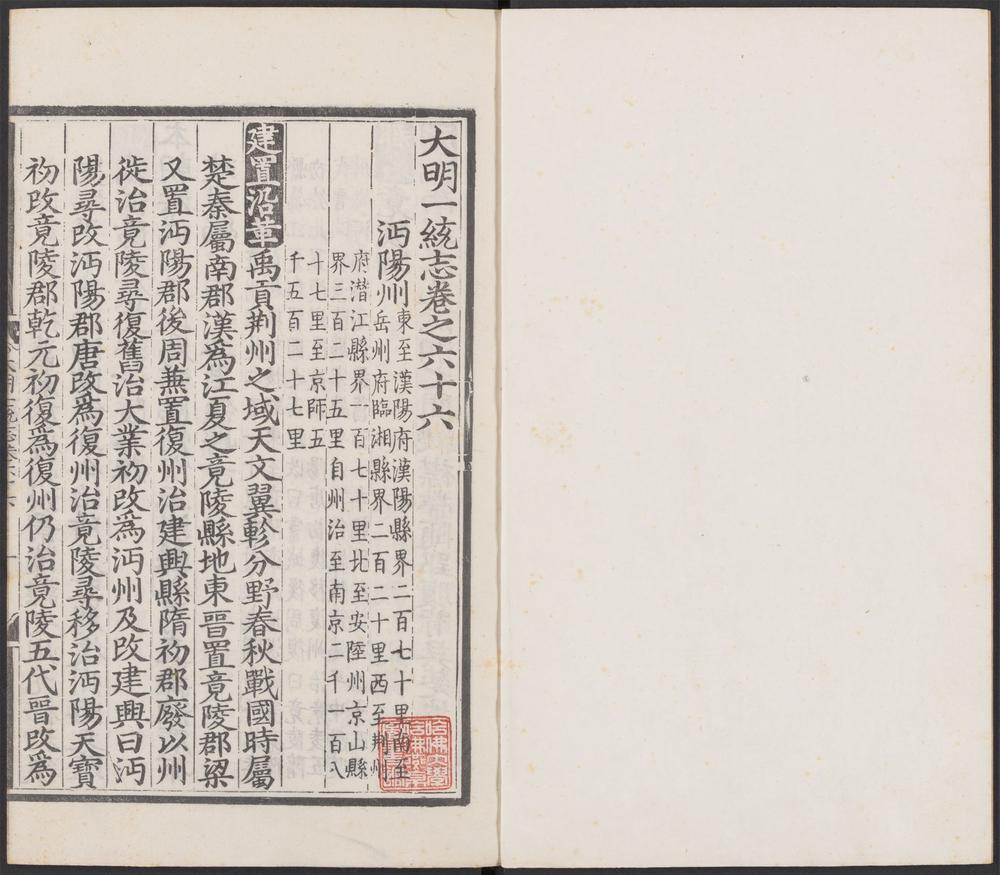 大明一統志卷之六十六
沔陽州東至漢陽府漢陽縣界二百七十里南至
岳州府臨湘縣界二百二十里西至荆州
府潛江縣界一百七十里北至安陸州京山縣
界三百二十五里自州治至南京二千一百八
十七里至京師五
千五百二十七里
建置沿革禹貢荆州之域天文翼軫分野春秋戰國時屬
楚秦屬南郡漢為江夏之竟陵縣地東晉置竟陵郡梁
又置沔陽郡後周兼置復州治建興縣隋初郡廢以州
徙治竟陵尋復舊治大業初改為沔州及改建興曰沔
陽尋改沔陽郡唐改為復州治竟陵尋移治沔陽天寶
初改竟陵郡乾元初復為復州仍治竟陵五代晉改為